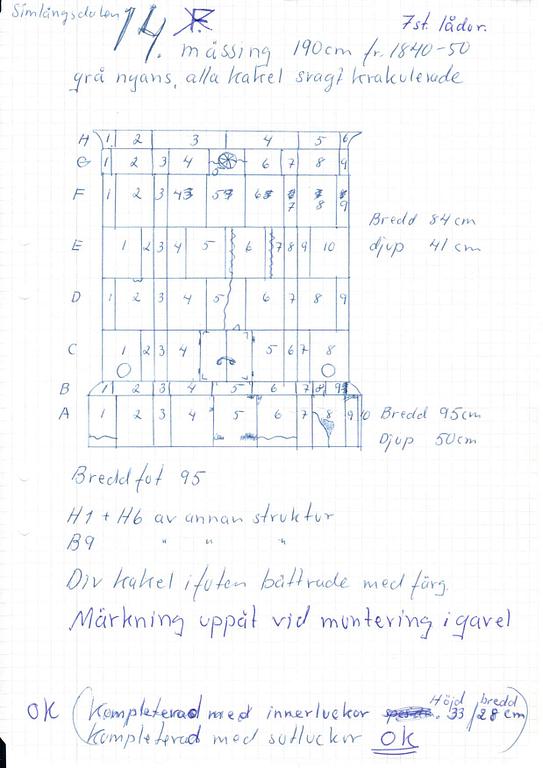 Simlångsdalen 14. F. 7st. lådor.
mässing 190cm fr. 1840-50
grå nyans, alla kakel svagt krakulerade
H 1 2 3 4 5 6
G 1 2 3 4 5 6 7 8 9
F 1 2 3 4 5 6 7 8 9
Bredd 84cm
E 1 2 3 4 5 6 7 8 9 10
djup 41 cm
D 1 2 3 4 5 6 7 8 9
C 1 2 3 4 5 6 7 8
B 1 2 3 4 5 6 7 8 9
A 1 2 3 4 5 6 7 8 9 10
Bredd 95cm
Djup 50cm
Bredd fot 95
H1 + H6 av annan struktur
B9 " " "
Div kakel i foten båttrade med färg.
Märkning uppåt vid muntering i gavel
Höjd bredd
OK (Kompleterad med innerluckor 33/28 cm)
Kompleterad med sotluckor OK